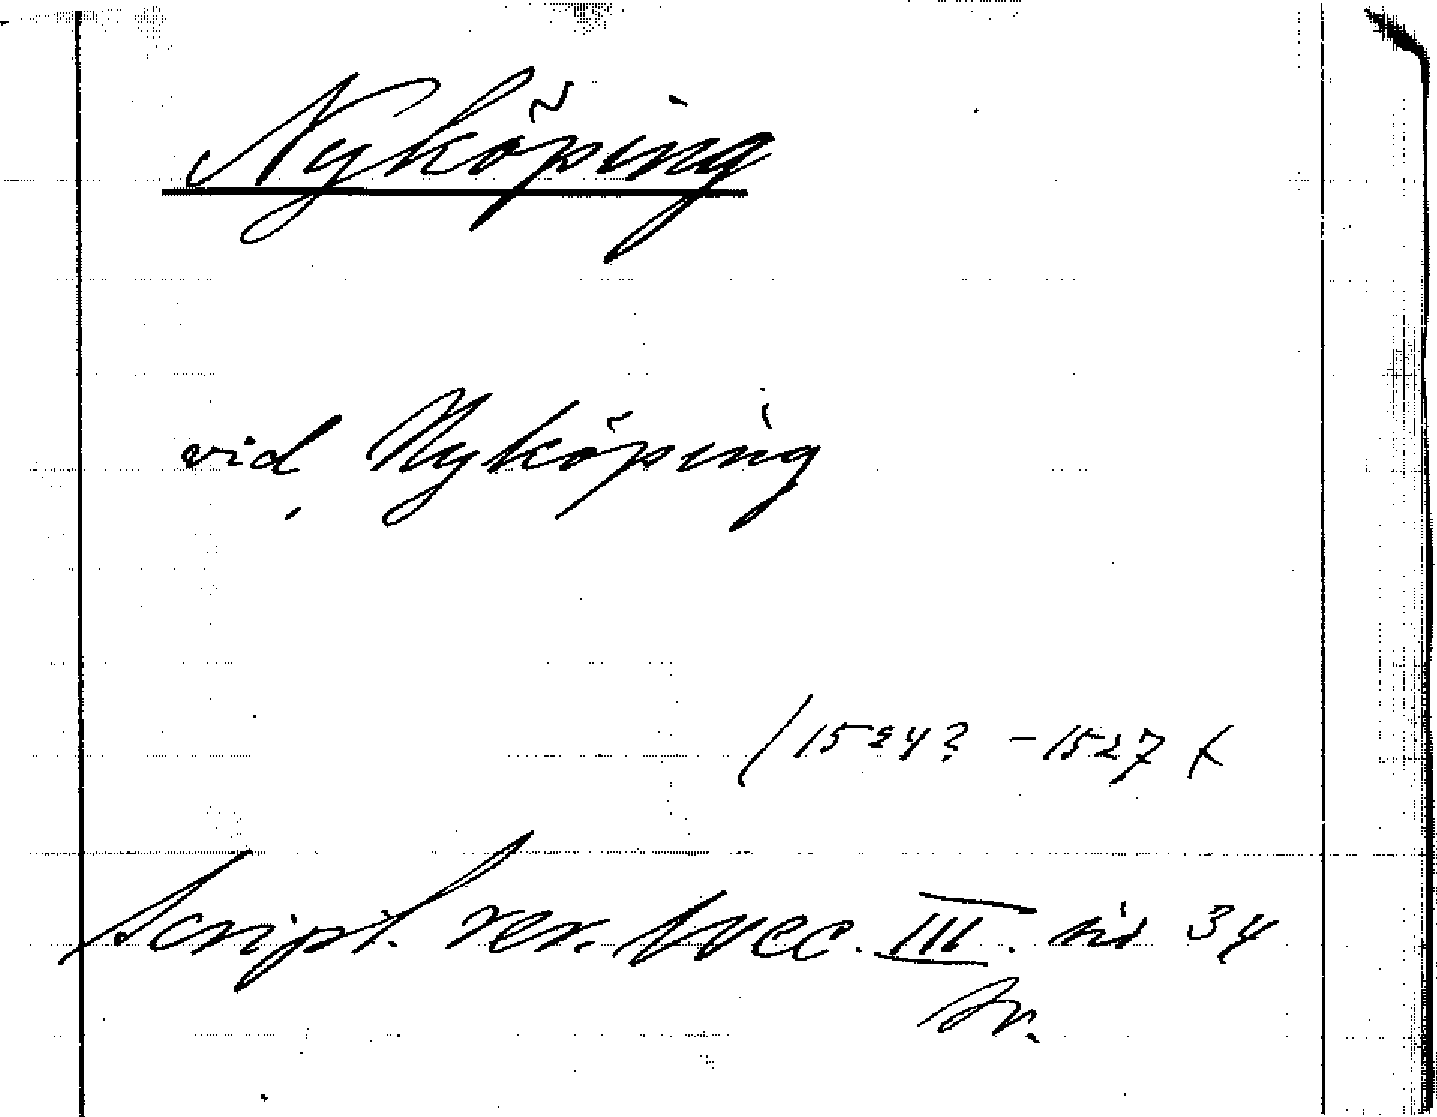 Nyköping
vid Nyköping
(1524? - 1527)
Script. rer. svec. III. sid 34